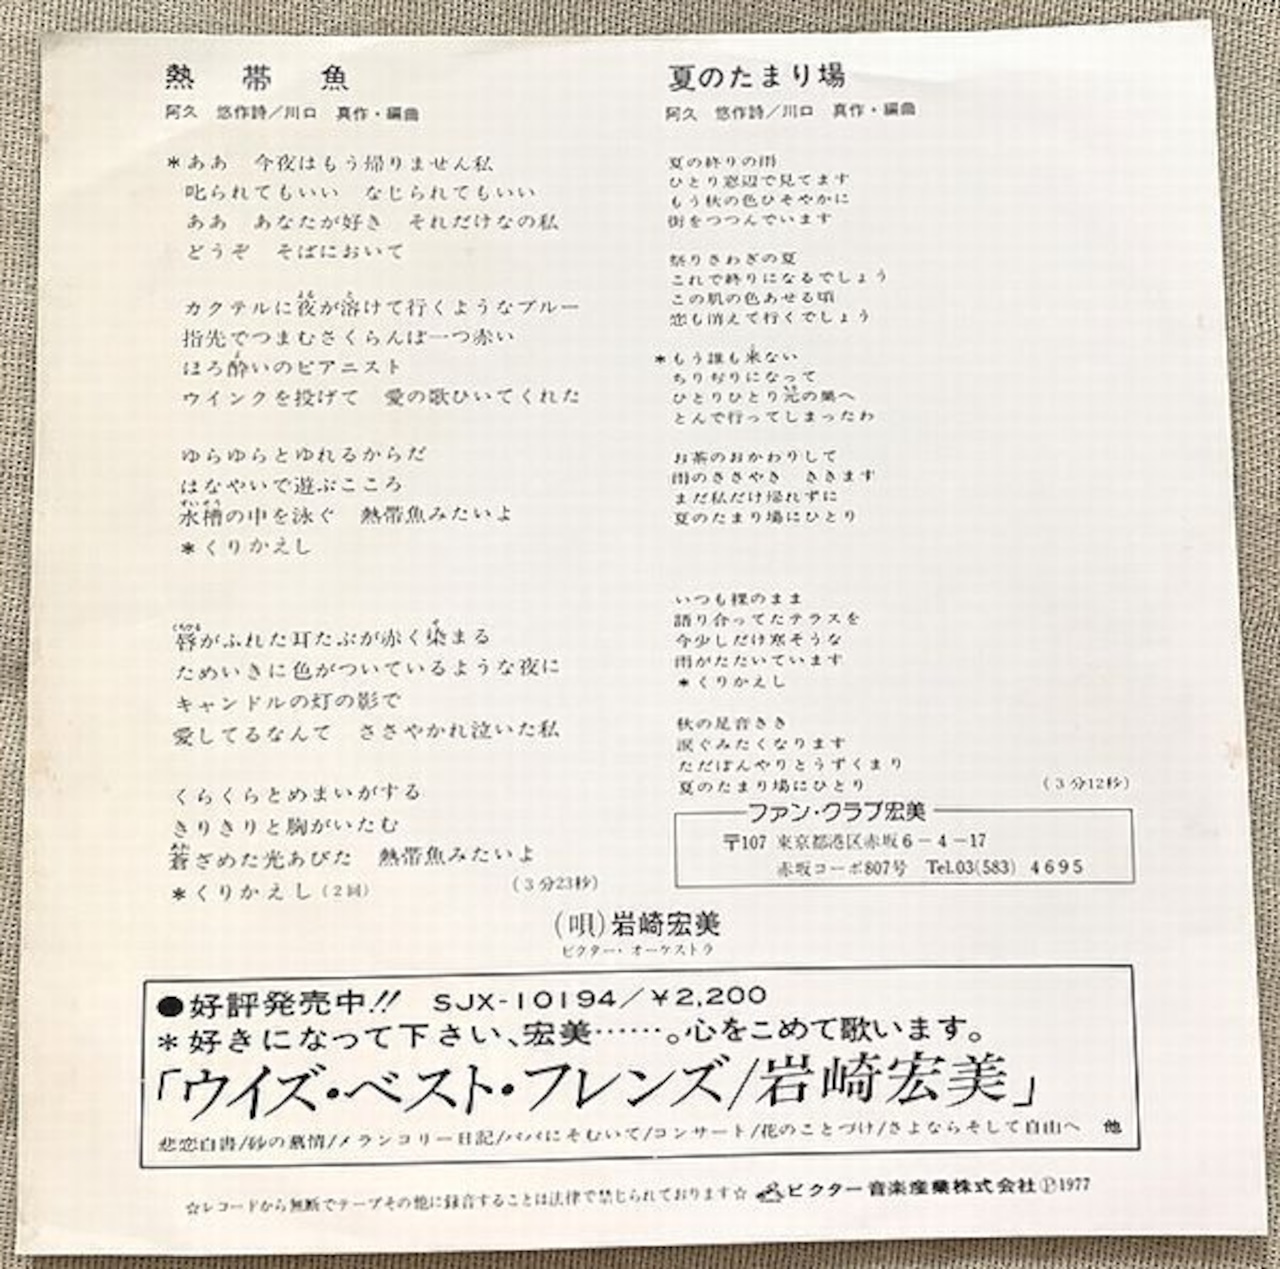 熱帯魚
阿久 悠作詩／川口 真作・編曲
＊ああ 今夜はもう帰りません私
叱られてもいい なじられてもいい
ああ あなたが好き それだけなの私
どうぞ そばにおいて
カクテルに夜が溶けて行くようなブルー
指先でつまむさくらんぼ一つ赤い
ほろ酔いのピアニスト
ウインクを投げて 愛の歌ひいてくれた
ゆらゆらとゆれるからだ
はなやいで遊ぶこころ
水槽の中を泳ぐ 熱帯魚みたいよ
＊くりかえし
唇がふれた耳たぶが赤く染まる
ためいきに色がついているような夜に
キャンドルの灯の影で
愛してるなんて ささやかれ泣いた私
くらくらとめまいがする
きりきりと胸がいたむ
蒼ざめた光あびた 熱帯魚みたいよ
＊くりかえし（2回）
（3分23秒）
夏のたまり場
阿久 悠作詩／川口 真作・編曲
夏の終りの雨
ひとり窓辺で見てます
もう秋の色ひそやかに
街をつつんでいます
祭りさわぎの夏
これで終りになるでしょう
この肌の色あせる頃
恋も消えて行くでしょう
＊もう誰も来ない
ちりぢりになって
ひとりひとり元の巣へ
とんで行ってしまったわ
お茶のおかわりして
雨のささやき ききます
まだ私だけ帰れずに
夏のたまり場にひとり
いつも裸のまま
語り合ってたテラスを
今少しだけ寒そうな
雨がたたいています
＊くりかえし
秋の足音きき
涙ぐみたくなります
ただぼんやりとうずくまり
夏のたまり場にひとり
（3分12秒）
ファン・クラブ宏美
〒107 東京都港区赤坂6－4－17
赤坂コーポ807号 Tel.03(583) 4695
(唄)岩崎宏美
ビクター・オーケストラ
●好評発売中!! SJX-10194／￥2,200
＊好きになって下さい、宏美……。心をこめて歌います。
「ウイズ・ベスト・フレンズ/岩崎宏美」
悲恋白書/砂の慕情/メランコリー日記/パパにそむいて/コンサート/花のことづけ/さよならそして自由へ 他
☆レコードから無断でテープその他に録音することは法律で禁じられております☆ ビクター音楽産業株式会社Ⓟ1977